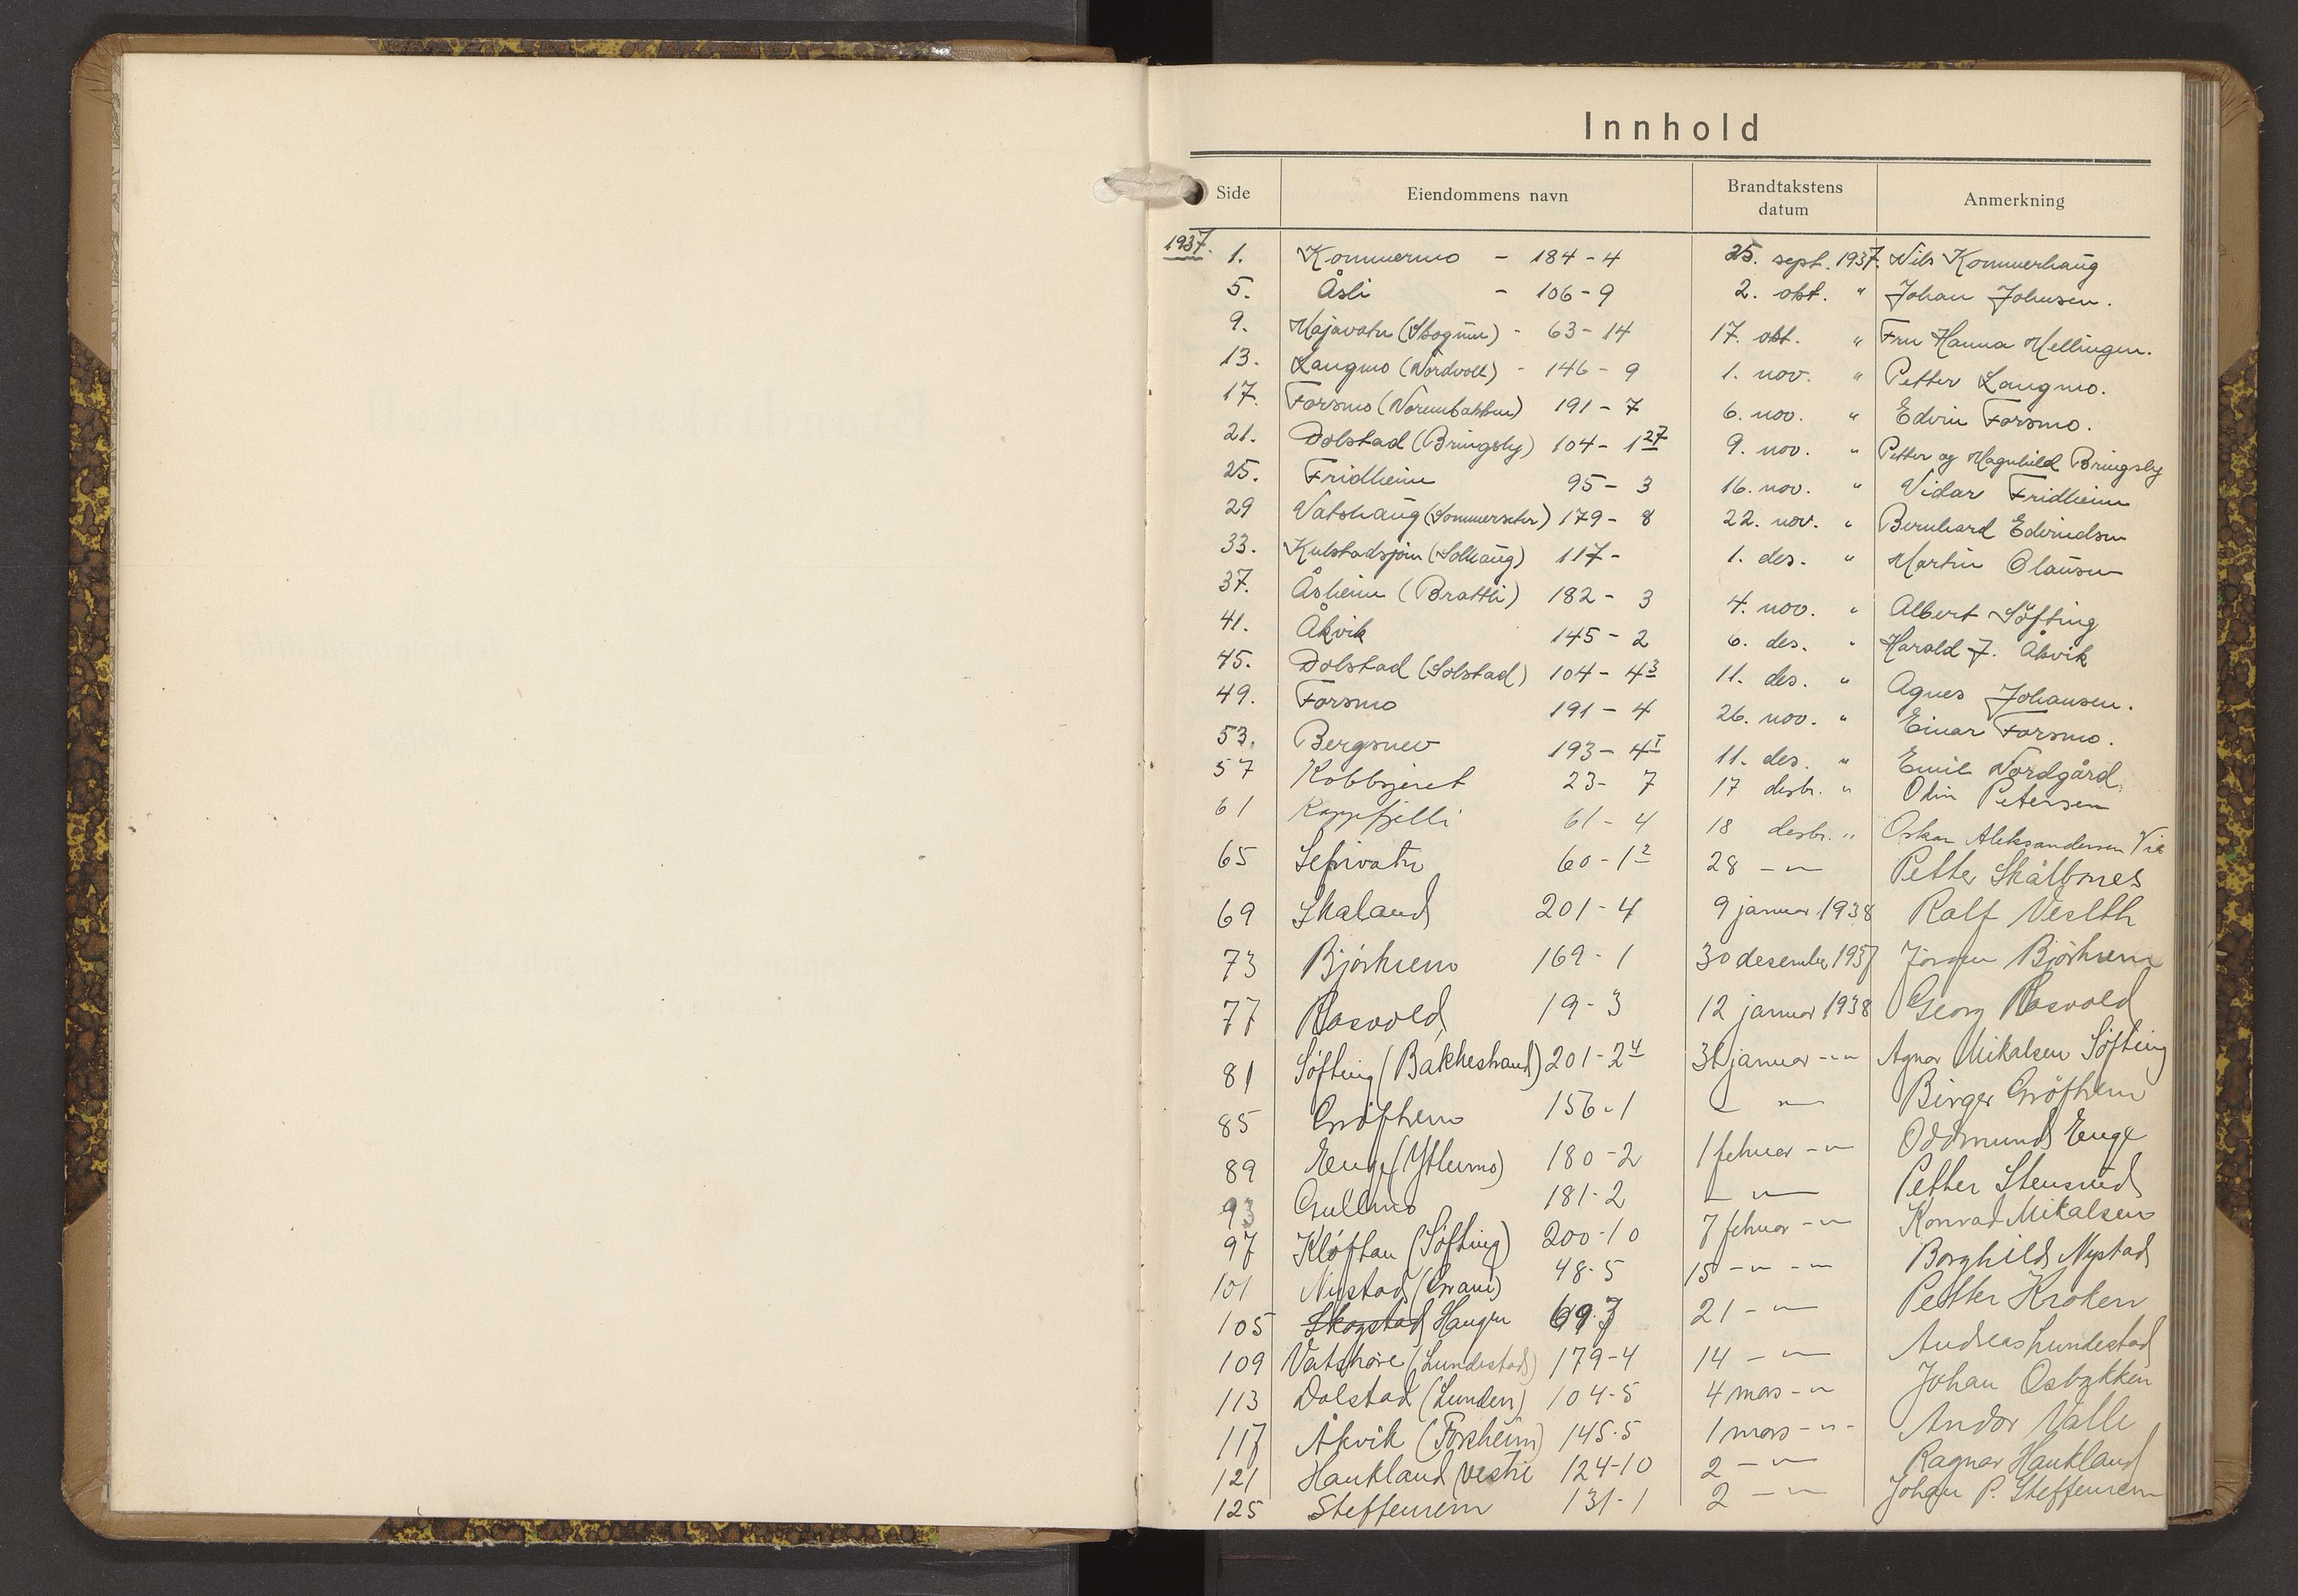 Innhold
Side Eiendommens navn Brandtakstens datum Anmerkning
1937. 1. Kommermo - 184-4 25. sept. 1937. Nils Kommerhaug
5. Åsli - 106-9 2. okt. " Johan Johnsen.
9. Majavatn (Skoglun) - 63-14 17. okt. " Fru Hanna Mellingen.
13. Langmo (Nordvoll) - 146-9 1. nov. " Petter Langmo.
17. Forsmo 191-7 6. nov. " Edvin Forsmo.
21. Dolstad (Bringsly) 104-1 27 9. nov. " Petter og Magnhild Bringsly
25. Fridheim 95-3 16. nov. " Vidar Fridheim
29 Vatshaug (Sommerseter) 179-8 22. nov. " Bernhard Edvindsen
33. Kulstadsjøen (Solhaug) 117- 1. des. " Martin Olausen
37. Åsheim (Brattli) 182-3 4. nov. " Albert Söfting
41. Åkvik 145-2 6. des. " Harald J. Åkvik
45. Dolstad (Solstad) 104-4 3 11. des. " Agnes Johansen.
49. Forsmo 191-4 26. nov. " Einar Forsmo.
53. Bergsnev 193-4 1 11. des. " Emil Nordgård.
57 23-7 17 desbr. " Odin Petersen
61 Kappfjelli 61-4 18 desbr. " Oskar Aleksandersen
65 Sefrivatn 60-1 2 28 -"- Petter Skålbones
69 Skaland 201-4 9 januar 1938 Ralf Veslth
73 Björkrem 169-1 30 desember 1937 Jörgen Björkrem
77 Rosvold 19-3 12 januar 1938 Georg Rosvold
81 Söfting (Bakkestrand) 201-2 4 31 januar -"- Agnar Mikalsen Söfting
85 Gröftrem 156-1 - "- Birger Gröftrem
89 Enge (Ytlermo) 180-2 1 februar -"- Oddmund Enge
93 Gullmo 181-2 - "- Petter Stensrud
97 Klöftan (Söfting) 200-10 7 februar -"- Konrad Mikalsen
101 Nystad (Grane) 48-5 15 -"- -"- Borghild Nystad
105 Skogstad Haugen 69.7 21 -"- Petter Kroken
109 (Lundestad) 179-4 14 -"- Andreas Lundestad
113 Dolstad (Lunden) 104-5 4 mars -"- Johan Osbykken
117 Åkvik (Forsheim) 145-5 1 mars -"- Andor Valle
121 Haukland vestre 124-10 2 -"- Ragnar Haukland
125 Steffenrem 131-1 2 -"- Johan P. Steffenrem